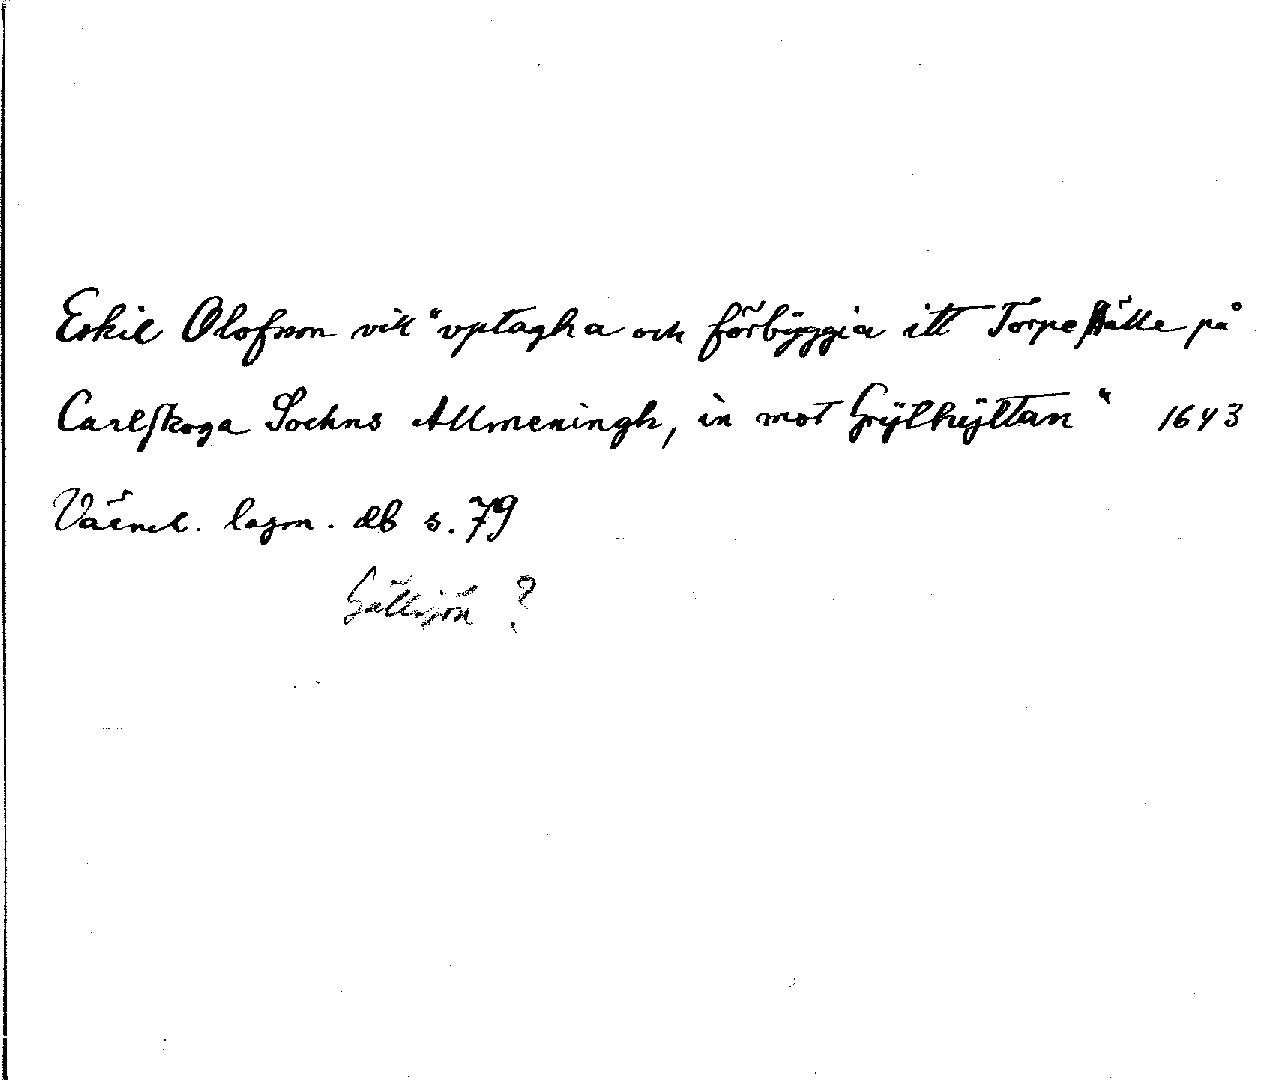 Eskil Olofsson vill "vptagha och förbÿggia itt Torpeställe på
Carlskoga Sochns Allmeningh, in mot Grÿthÿttan" 1643
Värml. lagm. db s. 79
Gällsjön ?